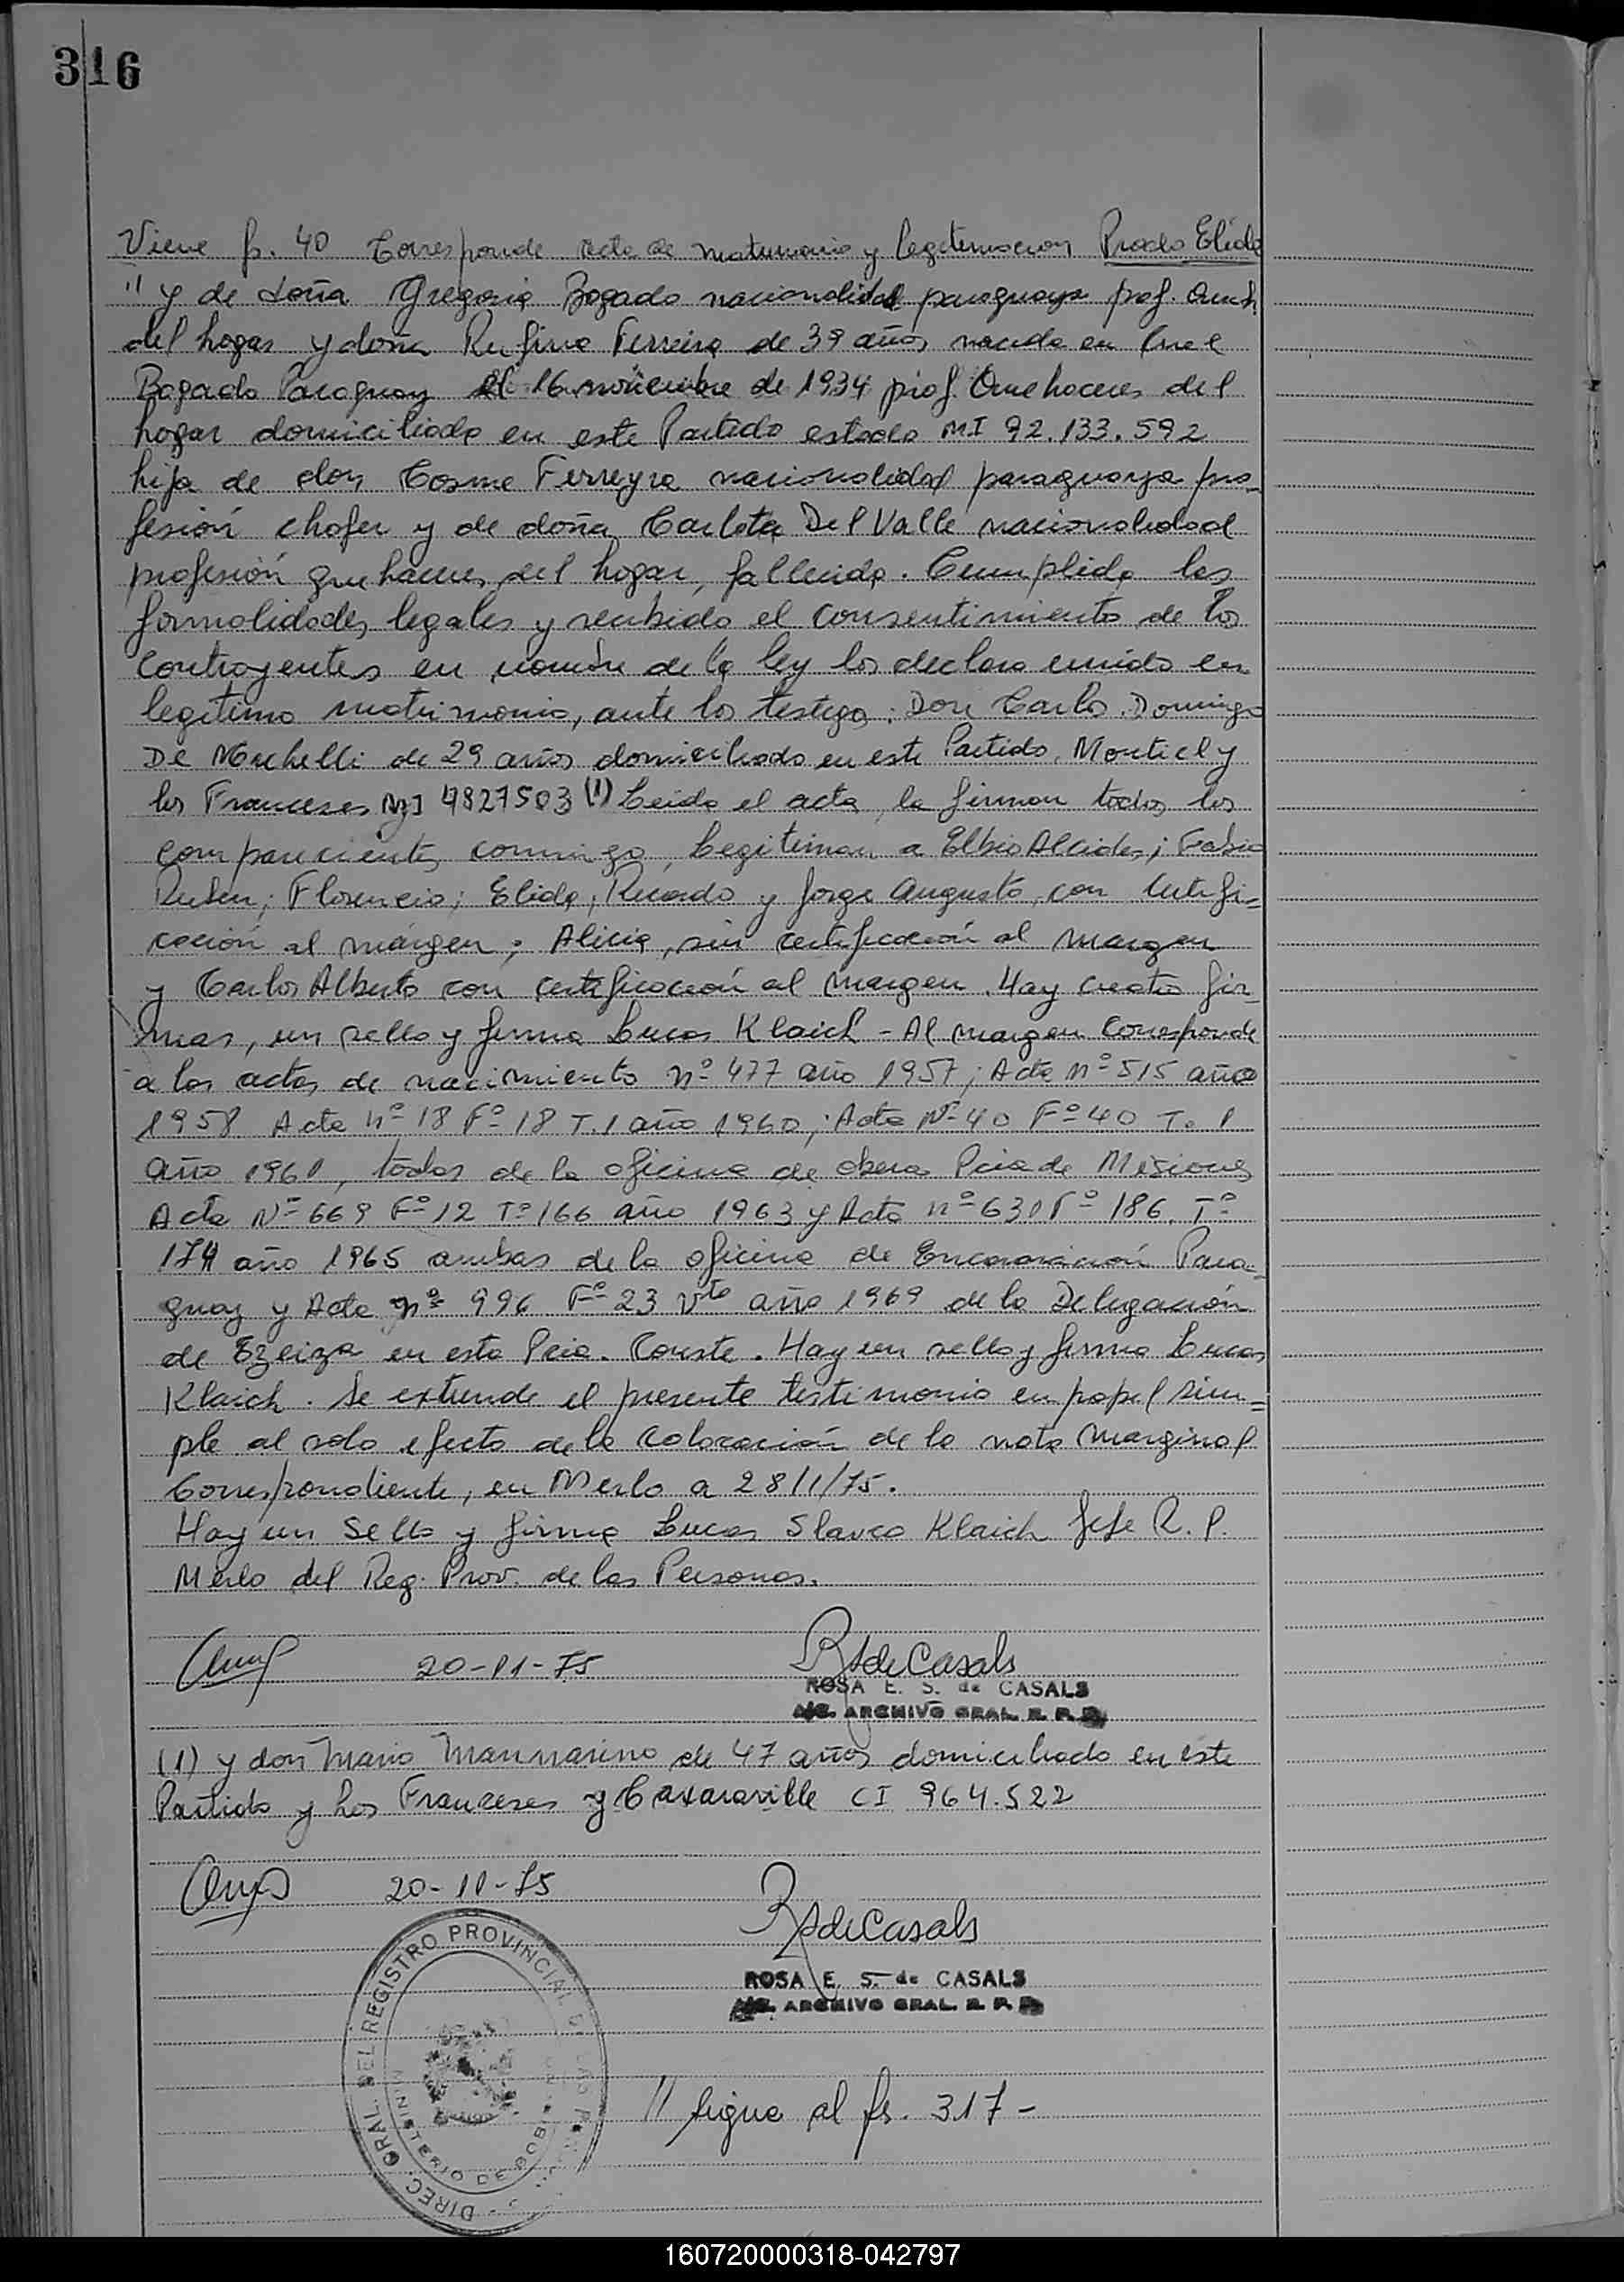 316
Viene fs. 40 Corresponde acta de matrimonio y legitimacion Prado Elida
" y de doña Gregoria Bogado nacionalidad paraguaya prof. Queh.
del hogar y doña Rufina Ferreira de 39 años nacida en Cnel
Bogado Paraguay el 16 noviembre de 1934 prof. Quehaceres del
hogar domiciliada en este Partido estado MI 92.133.592
hija de don Cosme Ferreyra nacionalidad paraguaya pro-
fesión chofer y de doña Carlota Del Valle nacionalidad
profesión quehaceres del hogar, fallecida. Cumplida las
formalidades legales y recibido el consentimiento de los
contrayentes en nombre de la ley los declaro unido en
legítimo matrimonio, ante los testigos: Don Carlos Domingo
De Michelli de 29 años domiciliado en este Partido, Montiel y
los Franceses MI 4827503 (1) Leida el acta, la firman todos los
comparecientes conmigo, Legitiman a Elbio Alcides; Fabio
Ruben; Florencio; Elida; Ricardo y Jorge Augusto, con certifi=
cación al márgen; Alicia, sin certificación al margen
y Carlos Alberto con certificación al margen. Hay cuatro fir-
mas, un sello y firma Lucas Klaich - Al margen Corresponde
a las actas de nacimiento nº 477 año 1957; Acta nº 515 año
1958 Acta nº 18 Fº 18 T. 1 año 1960; Acta Nº 40 Fº 40 T. 1
año 1961, todas de la oficina de Obera Pcia de Misiones
Acta Nº 669 Fº 12 Tº 166 año 1963 y Acta nº 631 Fº 186. Tº
174 año 1965 ambas de la oficina de Encarnación Para-
guay y Acta nº 996 Fº 23 Vto año 1969 de la Delegación
de Ezeiza en esta Pcia. Conste. Hay un sello y firma Lucas
Klaich. Se extiende el presente testimonio en papel sim=
ple al solo efecto de la colocación de la nota marginal
Correspondiente, en Merlo a 28/1/75.
Hay un Sello y firma Lucas Slavco Klaich Jefe R. P.
Merlo del Reg. Prov. de las Personas.
20-11-75 RSdeCasals
ROSA E. S. de CASALS
A/C. ARCHIVO GRAL. R. P. P.
(1) y don Mario Mannarino de 47 años domiciliado en este
Partido y Los Franceses y Caxaraville CI 964.522
20-11-75 RSdeCasals
ROSA E. S. de CASALS
A/C. ARCHIVO GRAL. R. P. P.
DIREC. GRAL. DEL REGISTRO PROVINCIAL DE LAS PER
MINISTERIO DE GOBI
// sigue al fs. 317 -
160720000318-042797